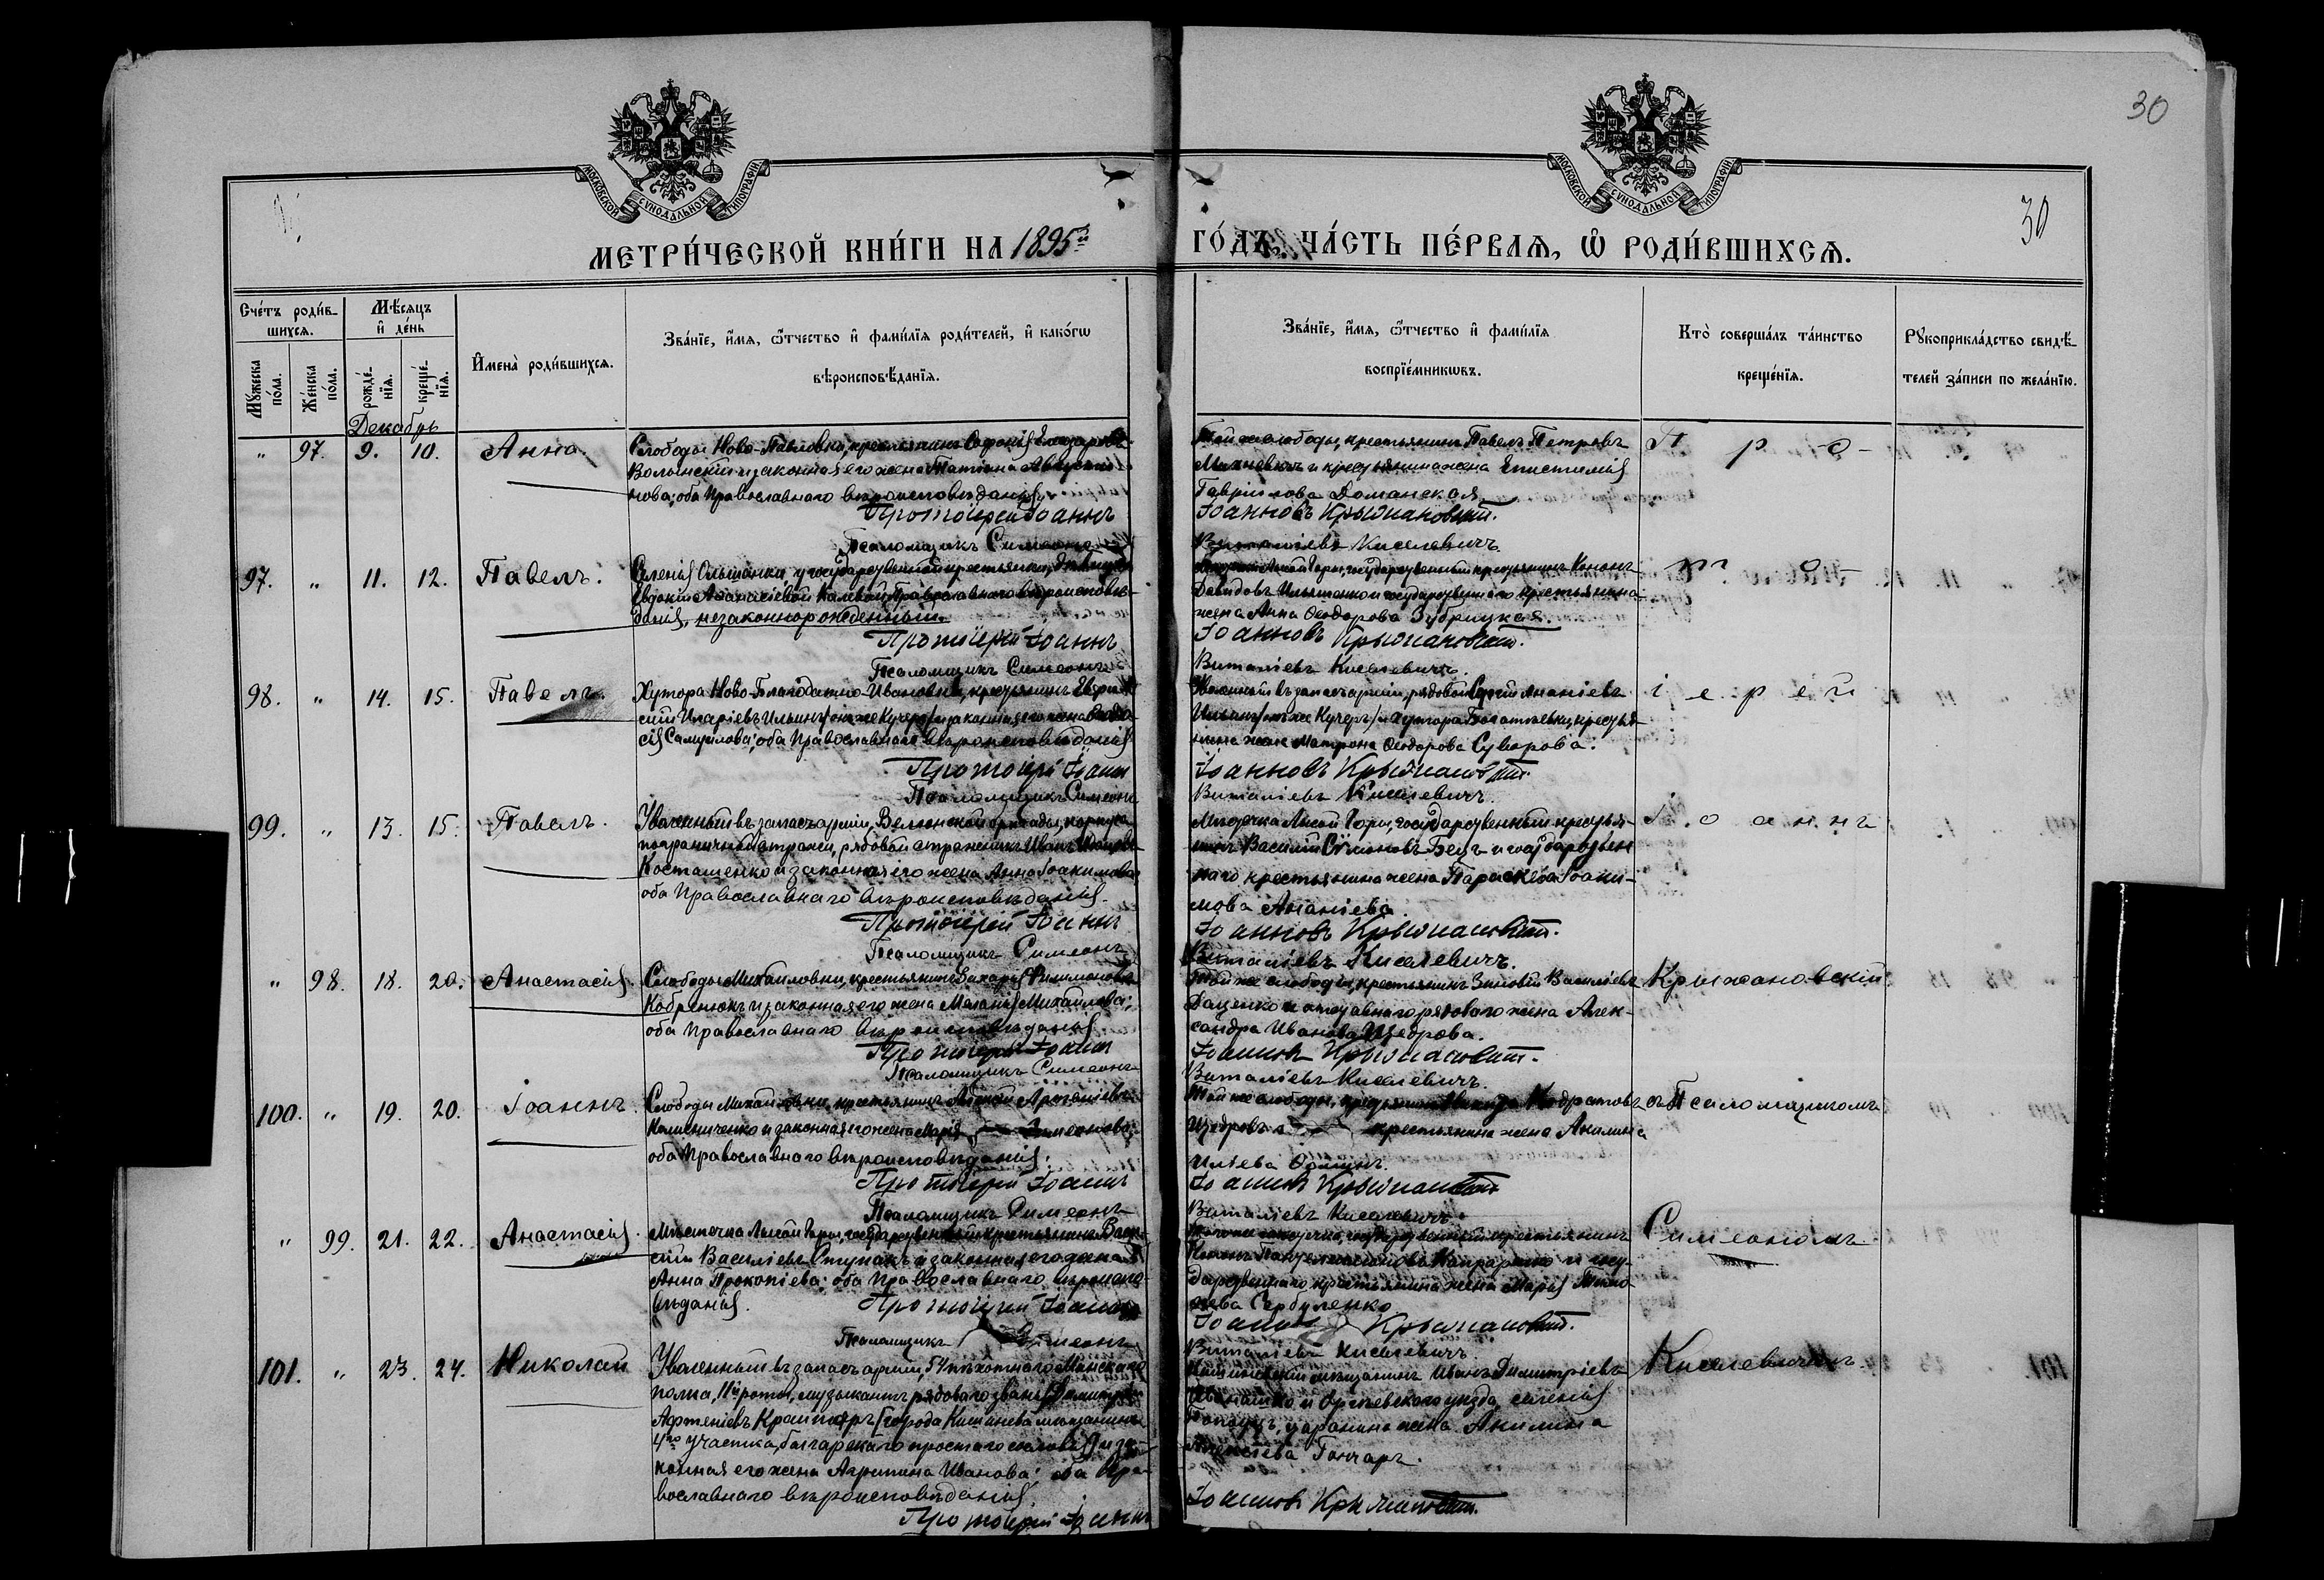 30
30
МОСКОВСКОЙ СѴНОДАЛЬНОЙ ТИПОГРАФІИ
МОСКОВСКОЙ СѴНОДАЛЬНОЙ ТИПОГРАФІИ
МЕТРИ́ЧЕСКОЙ КНИ́ГИ НА 1895й ГО́ДЪ, ЧА́СТЬ ПЕ́РВАѦ, Ѽ РОДИ́ВШИХСѦ.
Сче́тъ роди́в-
шихсѧ.
Мꙋ́жеска по́ла.
Же́нска по́ла.
Мѣ́сѧцъ
и҆ де́нь
рожде́-
нїѧ.
креще́-
нїѧ.
И҆мена̀ роди́вшихсѧ.
Зва́нїе, и҆́мѧ, ѻ҆́тчество и҆ фами́лїѧ роди́телей, и҆ како́гѡ
вѣроисповѣ́данїѧ.
Зва́нїе, и҆́мѧ, ѻ҆́тчество и҆ фами́лїѧ
воспрїе́мникѡвъ.
Кто̀ соверша́лъ та́инство
креще́нїѧ.
Рꙋкоприкла́дство свидѣ́-
телей за́писи по жела́нїю.
Декабрь
" 97. 9. 10. Анна.
Слободы Ново-Павловки, крестьянинъ Софоній
Волынскій и законная его жена Татіана
нова; оба Православнаго вѣроисповѣданія.
Протоіерей Іоаннъ
Псаломщикъ Симеонъ
Той же слободы, крестьянинъ Павелъ Петровъ
Махневичъ и крестьянина жена Епистимія
Гавріилова Доманская.
Іоанновъ Крыжановскій.
Виталіевъ Киселевичъ.
П р о -
97. " 11. 12. Павелъ.
Селенія Ольшанки, у государственной крестьянки,
Евдокіи Аѳанасіевой Православнаго вѣроисповѣ-
данія, незаконнорожденный.
Протоіерей Іоаннъ
Псаломщикъ Симеонъ
Лысой Горы, государственный крестьянинъ Кононъ
Давидовъ Ильяшенко и государственнаго крестьянина
жена Анна Ѳеодорова Зубрицкая.
Іоанновъ Крыжановскій.
Виталіевъ Киселевичъ.
т о -
98. " 14. 15. Павелъ.
Хутора Ново-Благодатно-Ивановки, крестьянинъ
Иларіевъ Ильинъ /онъ же Кучеръ/ и законная его жена
Самуилова; оба Православнаго вѣроисповѣданія
Протоіерей Іоаннъ
Псаломщикъ Симеонъ
Уволенный въ запасъ арміи, рядовой Сергій Ананіевъ
Ильинъ /онъ же Кучеръ/ и хутора Богатыевки, крестья-
нина жена Матрона Ѳеодорова Суворова.
Іоанновъ Крыжановскій.
Виталіевъ Киселевичъ.
і е р е й
99. " 13. 15. Павелъ.
Уволенный въ запасъ арміи, Велюнской бригады, корпуса
пограничной стражи, рядовой стражникъ Иванъ
Косташенко и законная его жена Анна Іоакимова
оба Православнаго вѣроисповѣданія.
Протоіерей Іоаннъ
Псаломщикъ Симеонъ
Мѣстечка Лысой Горы, государственный крестья-
нинъ Василій Симоновъ Бецъ и государствен
наго крестьянина жена Параскева Іоаки-
мова Ананіева.
Іоанновъ Крыжановскій.
Виталіевъ Киселевичъ.
І о а н н ъ
" 98. 18. 20. Анастасія.
Слободы Михайловки, крестьянинъ Захарія Филимоновъ
Кобренюкъ и законная его жена Меланія Михайлова;
оба Православнаго вѣроисповѣданія.
Протоіерей Іоаннъ
Псаломщикъ Симеонъ
Той же слободы, крестьянинъ Зиновій Василіевъ
Даценко и отставнаго рядоваго жена Алек-
сандра Иванова Щедрова.
Іоанновъ Крыжановскій.
Виталіевъ Киселевичъ.
Крыжановскій
100. " 19. 20. Іоаннъ.
Слободы Михайловки, крестьянинъ
Колисниченко и законная его жена Марія Симеонова;
оба Православнаго вѣроисповѣданія.
Протоіерей Іоаннъ
Псаломщикъ Симеонъ
Той же слободы, крестьянинъ Кодратовъ
Щедровъ и крестьянина жена Акилина
Иліева
Іоанновъ Крыжановскій
Виталіевъ Киселевичъ.
съ Псаломщикомъ
" 99. 21. 22. Анастасія.
Мѣстечка Лысой Горы, государственный крестьянинъ Васи-
лій Василіевъ Ступакъ и законная его жена
Анна Прокопіева; оба Православнаго вѣроиспо-
вѣданія.
Протоіерей Іоаннъ
Псаломщикъ Симеонъ
Того же мѣстечка, государственный крестьянинъ
и госу-
дарственнаго крестьянина жена Марія Тимо-
ѳеева Сербуленко.
Іоанновъ Крыжановскій.
Виталіевъ Киселевичъ.
Симеономъ
101. " 23. 24. Николай
Уволенный въ запасъ арміи, 54 пѣхотнаго Минскаго
полка, 11й роты, музыкантъ рядоваго званія Димитрій
[города Кишинева мѣщанинъ
4го участка, болгарскаго простаго сословія] и за-
конная его жена Агрипина Иванова; оба Пра-
вославнаго вѣроисповѣданія.
Протоіерей Іоаннъ
Кишиневскій мѣщанинъ Иванъ Димитріевъ
и Оргѣевскаго уѣзда, селенія
царанина жена Акилина
Алексіева Гончаръ.
Іоанновъ Крыжановскій.
Киселевичемъ.